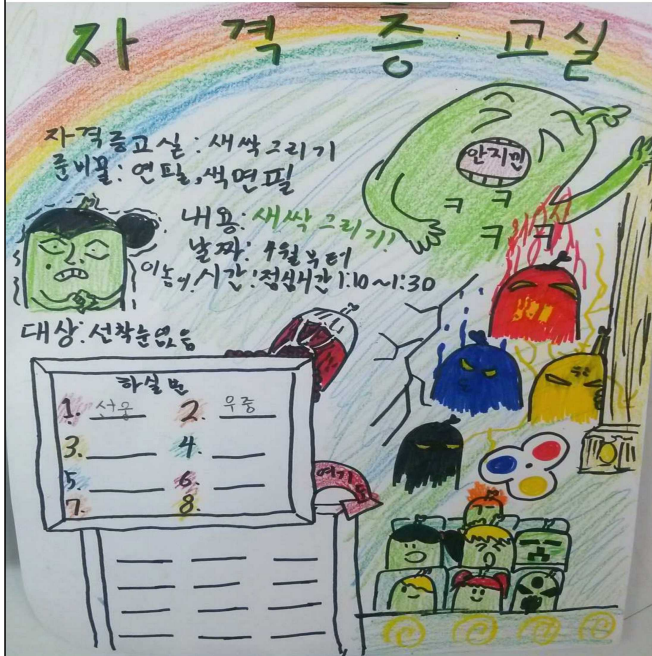 자격증 교실
자격증교실 : 새싹그리기
준비물 : 연필, 색연필
내용: 새싹 그리기!
날짜: 4월부터
이놈이.
시간: 점심시간 1:10~1:30
대상: 선착순없음
안지민
ㅋ ㅋ
ㅋ ㅋ
하실 분
1. 2. 우중
3. 4.
5. 6.
7. 8.
여기